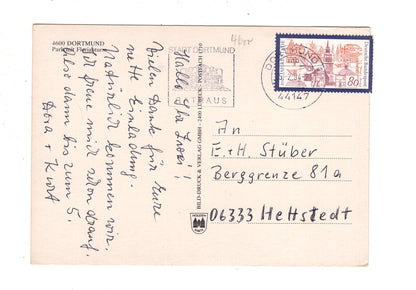 4600 DORTMUND
Hallo Ihr Zwei!!
Vielen Dank für Eure
nette Einladung.
Natürlich kommen wir.
Ich freue mich schon drauf.
Also dann bis zum 5.
+ Kurt
BILD-DRUCK & VERLAG GMBH · 2400 LÜBECK · POSTFACH
STADT DORTMUND
RATHAUS
DORTMUND
44147
80
An
E.+H. Stüber
Berggrenze 81a
06333 Hettstedt